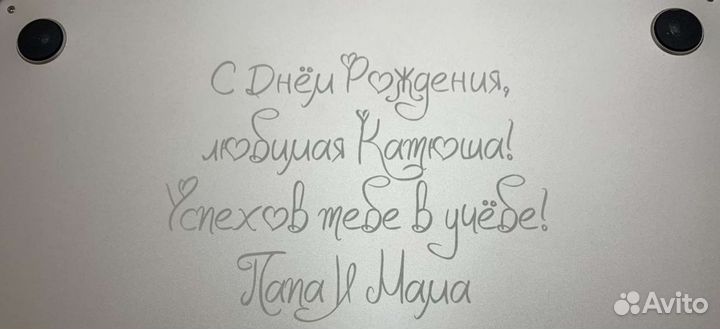 С Днём Рождения,
любимая Катюша!
Успехов тебе в учёбе!
Папа И Мама
Avito